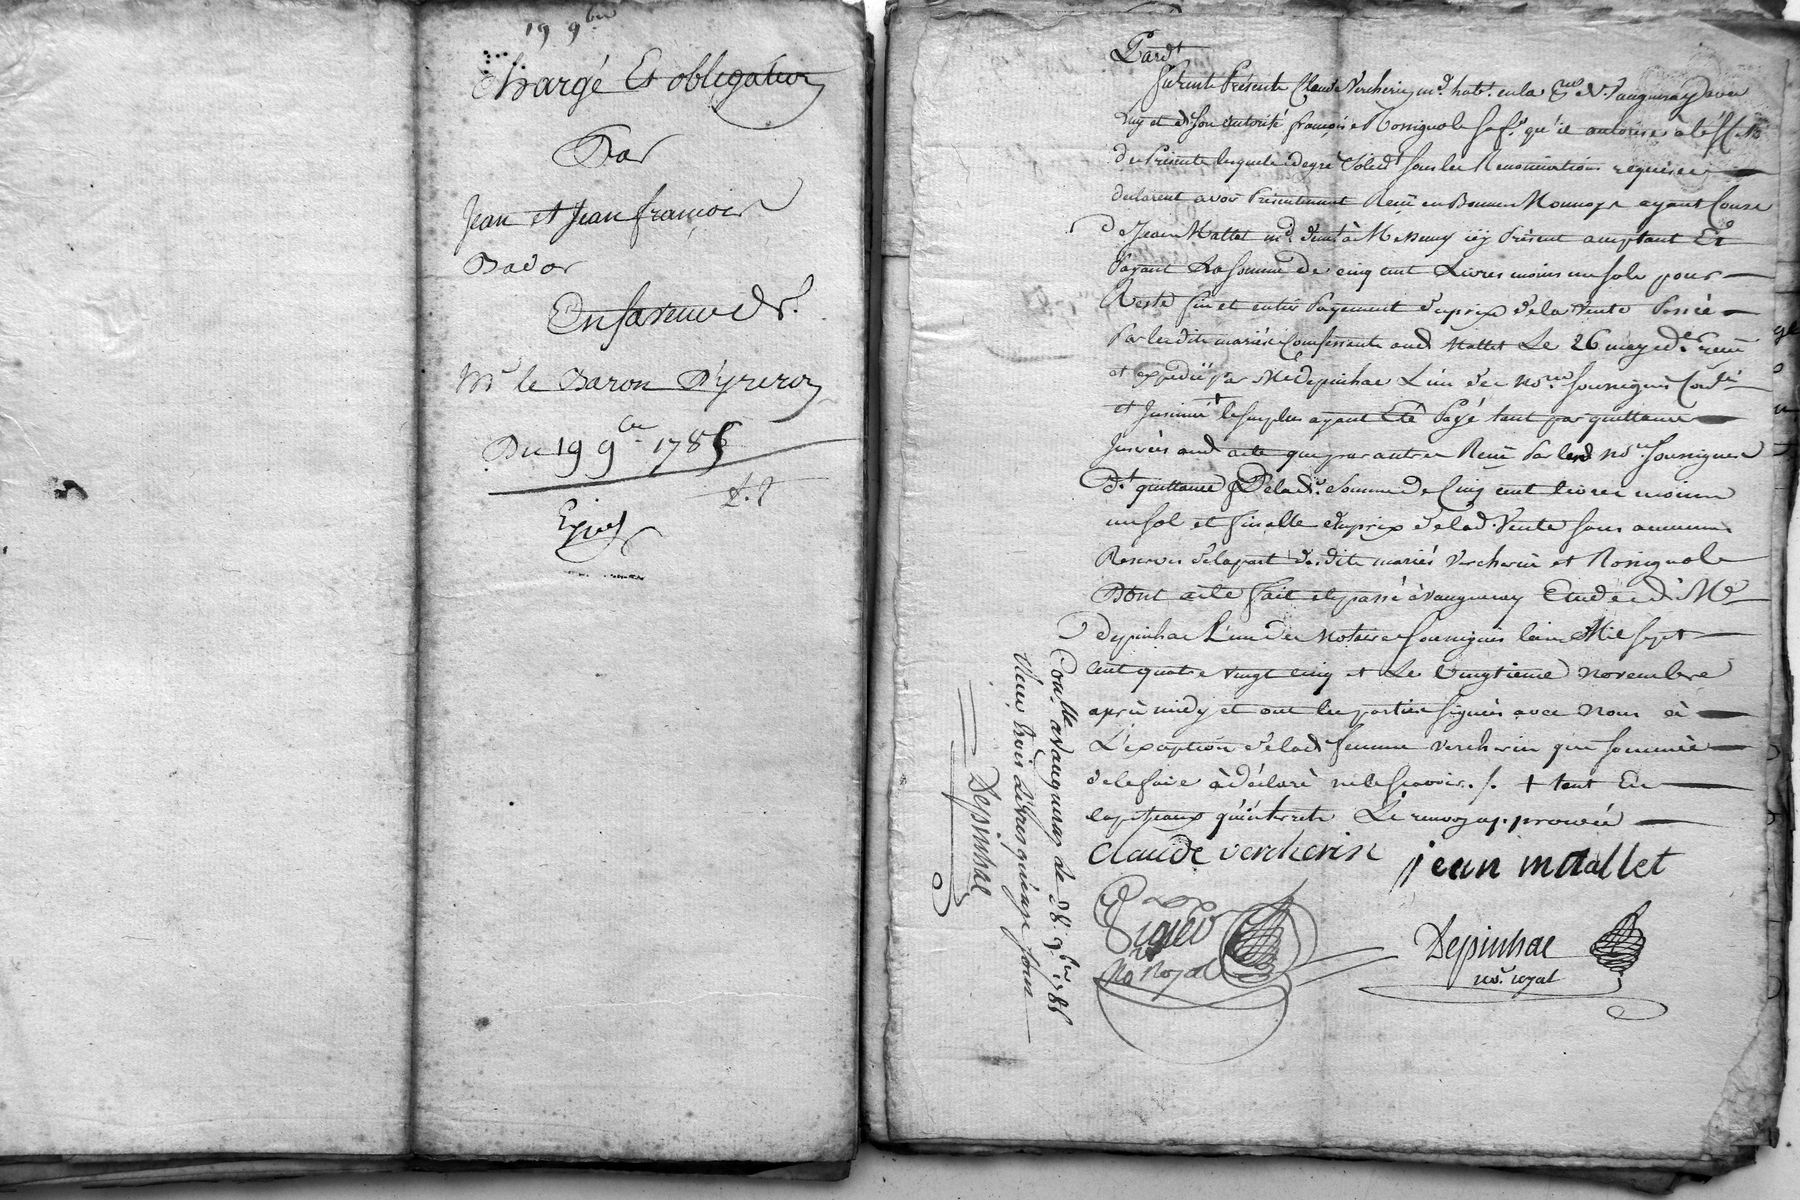 19 9bre
Chargé Et obligation
Par
Jean et Jean françois
Bador
En faveur de
Mr le Baron D'yzeron
Du 19 9bre 1785
Expé
Pardt
furent Présents Claude Vercherin md habt en la de Vaugneray avec
luy et de son autorité françoise Rossignole sa fe qu'il autorise à
des Présentes lesquels de gré solidt sous les Renonciations requises
declarent avoir Présentement Reçu en Bonnes Monnoye ayant Cours
de Jean Mallet md à Messimy icy Présent acceptant Et
Payant La somme de cinq cent Livres moins un sols pour
Reste fin et entier Payement du prix de la Vente Passée
Par lesdits mariés Confessants aud Mallet Le 26 may der reçu
et expedié par Me Depinhac L'un des nores soussignés
et Insinué + le surplus ayant Eté Payé tant par quittance
Inserés aud acte que par autres Reçu Par led nore soussigné
Dt quittance De lade somme de Cinq cent livres moins
un sol et finalle du prix de lad. Vente sans aucunes
Reserves de la part desdits mariés Vercherin et Rossignole
Dont acte fait et passé à Vaugneray Etude de Me
Depinhac L'un des Notaires soussignés l'an Mil sept
cent quatre vingt cinq et Le vingtieme novembre
après midy et ont les parties signés avec nous à
L'exception de lad femme Vercherin qui sommée
de le faire à déclaré ne le sçavoir ./. + tant En
capitaux qu'intérêts Le renvoy approuvé
claude vercherin jean mallet
no royal
Depinhac
no. royal
Con.lle a Vaugneray le 28. 9bre 1785
Reçu trois Livres quinze sous
Depinhac